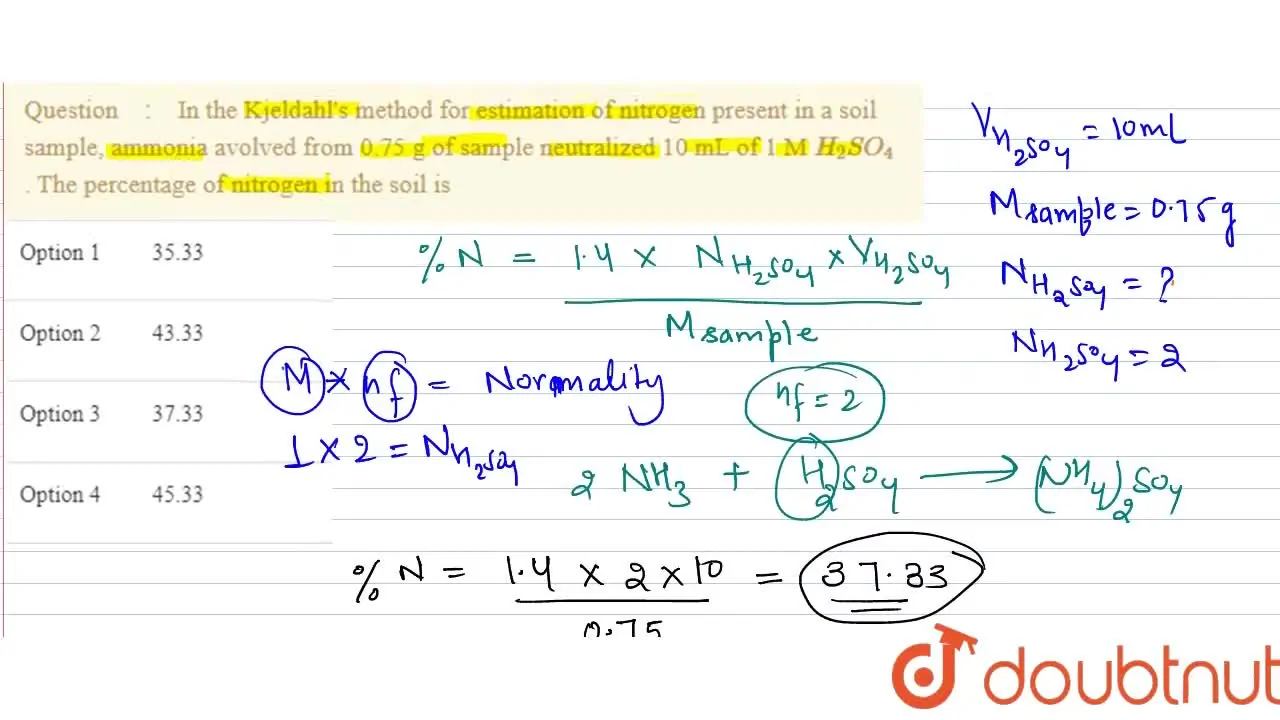 Question : In the Kjeldahl's method for estimation of nitrogen present in a soil
sample, ammonia avolved from 0.75 g of sample neutralized 10 mL of 1 M H₂SO₄
. The percentage of nitrogen in the soil is
Option 1 35.33
Option 2 43.33
Option 3 37.33
Option 4 45.33
V H₂SO₄ = 10mL
Msample = 0.75g
N H₂SO₄ = ?
N H₂SO₄ = 2
% N = 1.4 × N H₂SO₄ × V H₂SO₄
Msample
M × nf = Normality
nf = 2
1 × 2 = N H₂SO₄
2 NH₃ + H₂SO₄ ⟶ (NH₄)₂SO₄
% N = 1.4 × 2 × 10 = 37.33
0.75
doubtnut